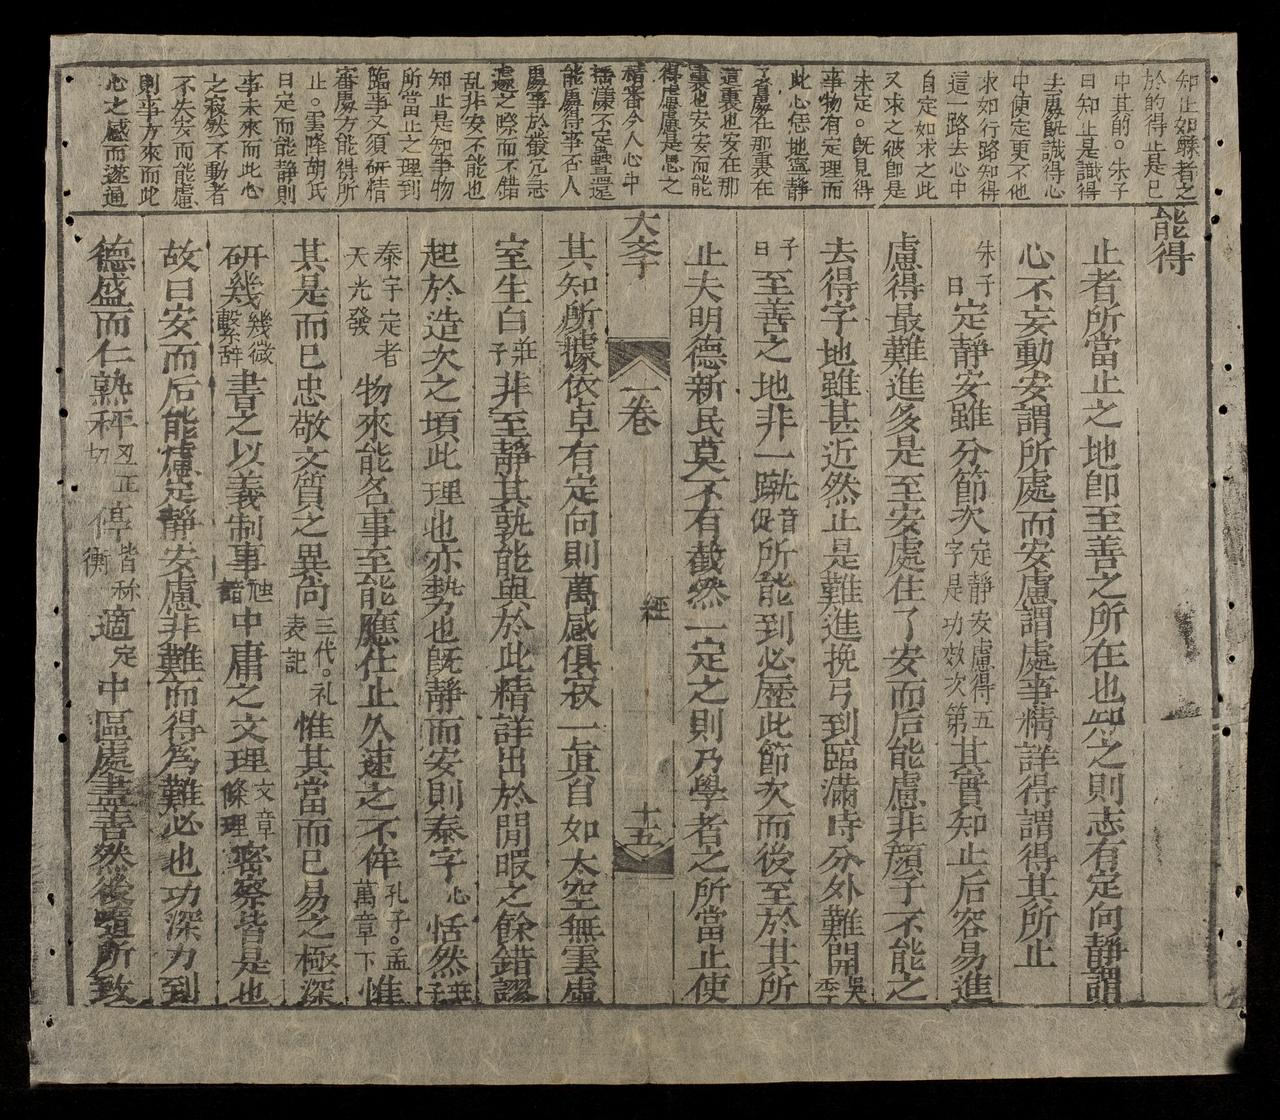 知止如射者之
於的得止是已
中其的○朱子
曰知止是識得
去處既識得心
中便定更不他
求如行路知得
這一路去心中
自定如求之此
又求之彼即是
未定○既見得
事物有定理而
此心恁地寧靜
了看處在那裏在
這裏也安在那
裏也安安而能
得慮慮是思之
精審今人心中
搖漾不定疊還
能處得事否人
處事於叢冗急
遽之際而不錯
乱非安不能也
知止是知事物
所當止之理到
臨事又須研精
審處方能得所
止○雲峰胡氏
曰定而能靜則
事未來而此心
之寂然不動者
不失安而能慮
則事方來而此
心之感而遂通
能得
止者所當止之地即至善之所在也知之則志有定向靜謂
心不妄動安謂所處而安慮謂處事精詳得謂得其所止
朱子曰定靜安雖分節次定靜安慮得五字是功效次第其實知止后容易進
慮得最難進多是至安處住了安而后能慮非顏子不能之
去得字地雖甚近然止是難進挽弓到臨滿時分外難開吳季
子曰至善之地非一蹴音促所能到必歷此節次而後至於其所
止夫明德新民莫不有截然一定之則乃學者之所當止使
大文 一卷 經 十五
其知所據依卓有定向則萬感俱寂一眞自如太空無雲虛
室生白莊子非至靜其孰能與於此精詳出於閒暇之餘錯謬
起於造次之頃此理也亦勢也既靜而安則泰宇心恬然莊子
泰宇定者天光發物來能名事至能應仕止久速之不侔孔子○孟萬章下惟
其是而已忠敬文質之異尚三代○礼表記惟其當而已易之極深
研幾幾微繫辞書之以義制事仲虺誥中庸之文理文章條理密察皆是也
故曰安而后能慮定靜安慮非難而得為難必也功深力到
德盛而仁熟秤丑正切停皆称衡適定中區處盡善然後隨所致